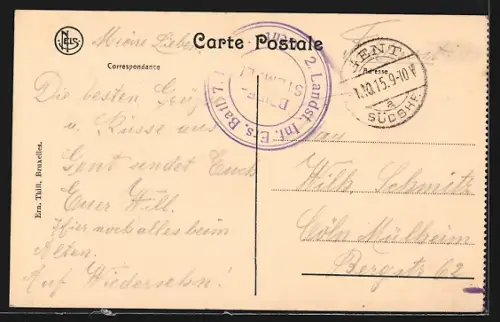 NELS
Meine Lieben
Carte Postale
Correspondance
Adresse
2. Landst. Inf. Ers. Batl.
GENT
1.10.15.9-10V
a
SÜDBHF
Die besten Grüße
u. Küsse aus
Gent sendet Euch
Euer Will.
Hier noch alles beim
Alten.
Auf Wiedersehn!
Ern. Thill, Bruxelles.
Frau
Wilh. Schmitz
Cöln Mülheim
Bergstr 62